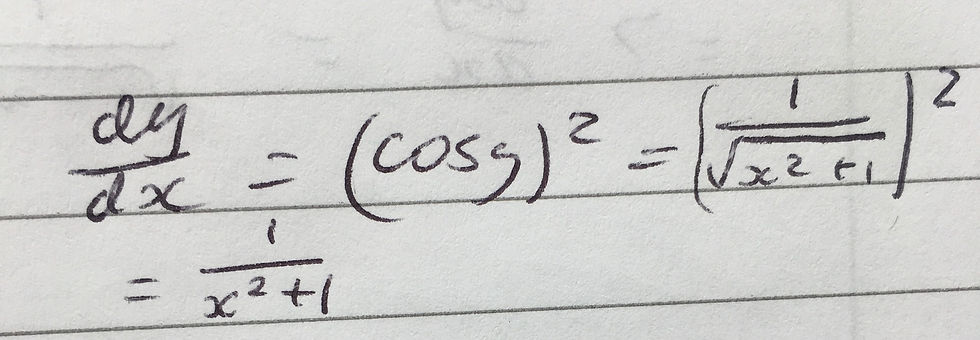 dy/dx = (cos y)² = (1/√(x²+1))²
= 1/(x²+1)